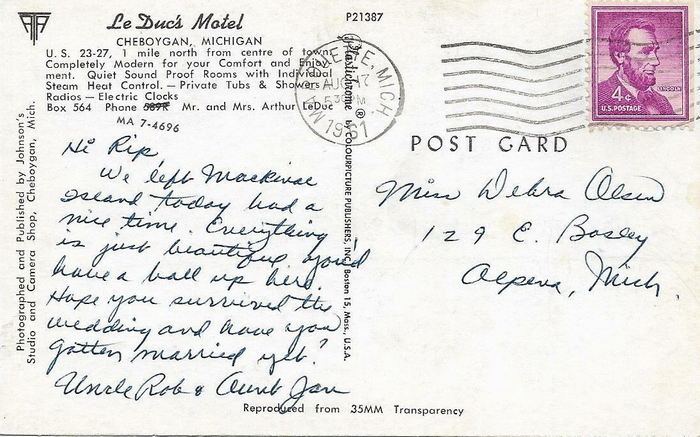 Le Duc's Motel
CHEBOYGAN, MICHIGAN
U. S. 23-27, 1 mile north from centre of town.
Completely Modern for your Comfort and Enjoy-
ment. Quiet Sound Proof Rooms with Individual
Steam Heat Control. — Private Tubs & Showers
Radios — Electric Clocks
Box 564 Phone 589R Mr. and Mrs. Arthur LeDuc
MA 7-4696
Hi Rip,
We left Mackinac
Island today had a
nice time. Everything
is just beautiful you'd
have a ball up here.
Hope you survived the
wedding and have you
gotten married yet?
Uncle Rob & Aunt Jan
Photographed and Published by Johnson's
Studio and Camera Shop, Cheboygan, Mich.
P21387
Plastichrome ® by COLOURPICTURE PUBLISHERS, INC., Boston 15, Mass., U.S.A.
MICH.
AUG 17
PM
1961
4¢
LINCOLN
U.S. POSTAGE
POST CARD
Miss Debra Olsen
129 E. Bosley
Alpena, Mich.
Reproduced from 35MM Transparency